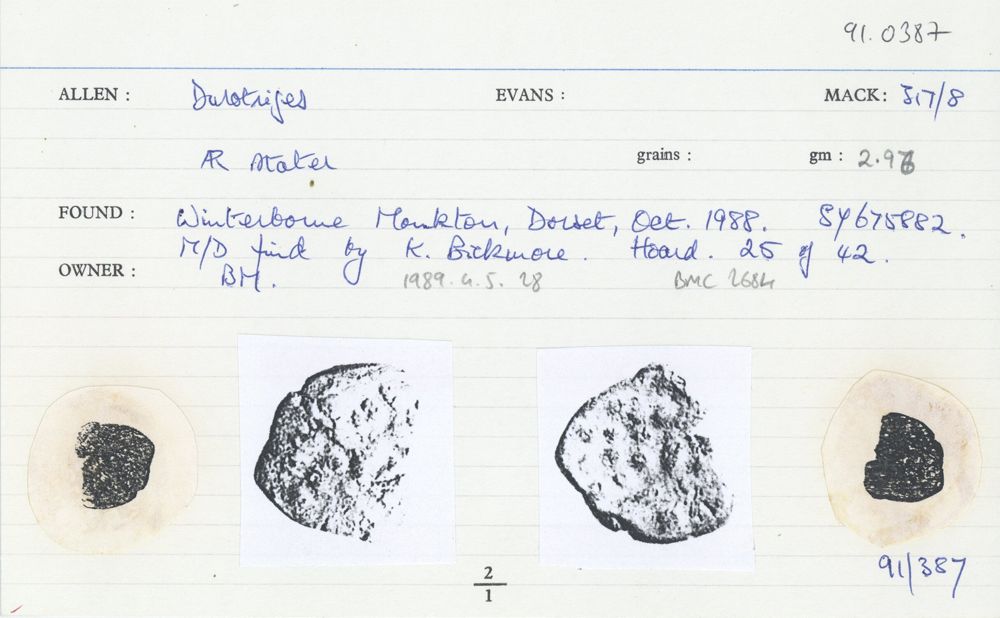 91.0387
ALLEN : Durotriges EVANS : MACK: 317/8
AR stater grains : gm : 2.96
FOUND : Winterborne Monkton, Dorset, Oct. 1988. SY675882.
M/D find by K. Bickmore. Hoard. 25 of 42.
OWNER : BM. 1989.4.5.28 BMC 2684
91/387
2
1